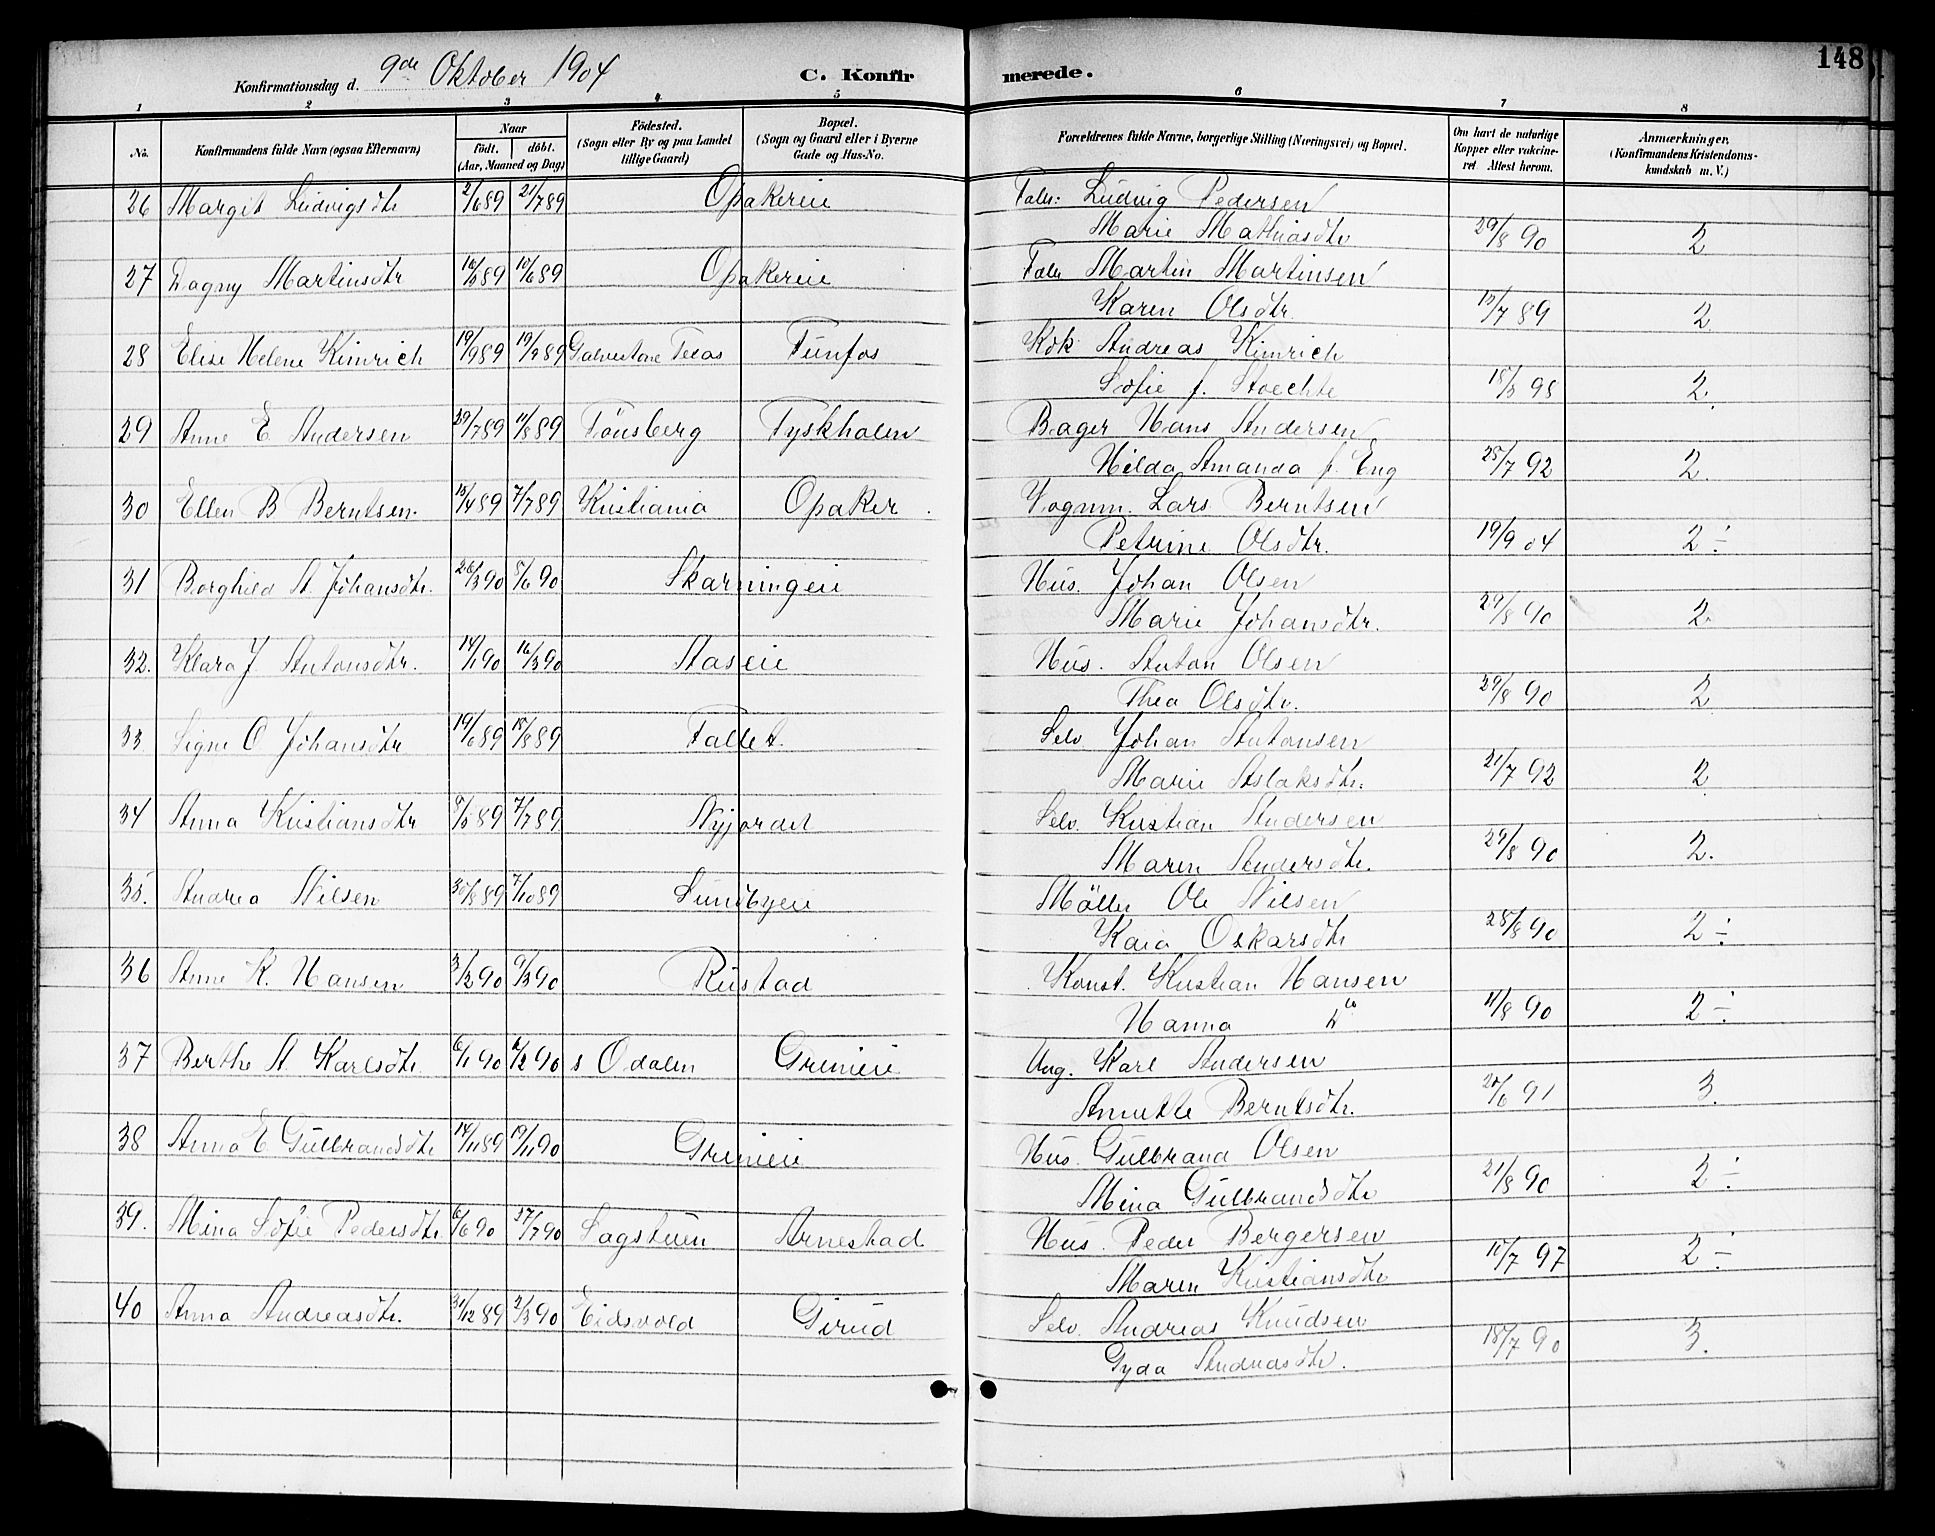 148
Konfirmationsdag d. 9de Oktober 1904 C. Konfirmerede.
1 2 3 4 5 6 7 8
No. Konfirmandens fulde Navn (ogsaa Efternavn) Naar födt. döbt. (Aar, Maaned og Dag) Födested. (Sogn eller By og paa Landet tillige Gaard) Bopæl. (Sogn og Gaard eller i Byerne Gade og Hus-No. Forældrenes fulde Navne, borgerlige Stilling (Næringsvei) og Bopæl. Om havt de naturlige Kopper eller vakcineret. Attest herom. Anmærkninger. (Konfirmandens Kristendomskundskab m. V.)
26 Margit Ludvigsdtr 2/6 89 21/7 89 Opakereie Ludvig Pedersen
Marie Mathiasdtr 29/8 90 2
27 Dagny Martinsdtr 89 10/6 89 Opakereie Martin Martinsen
Karen Olsdtr. 13/7 89 2
28 Elise Helene Kimrich 19/ 89 19/ 89 Galvestone Texas Funfos Kok Andreas Kimrich
Sofie f. Stoechte 2.
29 Anne E Andersen 29/7 89 11/8 89 Tönsberg Tyskholen Bager Hans Andersen
Hilda Amanda f. Eng 25/7 92 2.
30 Ellen B Berntsen. 15/4 89 7/7 89 Kristiania Opaker. Vognm. Lars Berntsen
Petrine Olsdtr. 19/9 04 2 ÷
31 Borghild A. Johansdtr. 26/3 90 8/6 90 Skarningeie Hus. Johan Olsen
Marie Johansdtr. 29/8 90 2.
32. Klara J. Antonsdtr. 14/1 90 16/3 90 Aaseie Hus. Anton Olsen
Thea Olsdtr. 29/8 90 2
33 Signe O Johansdtr 19/6 89 18/8 89 Fallet. Selv. Johan Antonsen
Marie Aslaksdtr. 21/7 92 2
34 Anna Kristiansdtr 89 7/7 89 Nyjordet Selv. Kristian Andersen
Maren Andersdtr. 29/8 90 2.
35. Andrea Nilsen 30/8 89 7/10 89 Sundbyeie Möller Ole Nilsen
Kaia Oskarsdtr 28/8 90 2 ÷
36 Anne K. Hansen 3/2 90 9/3 90 Rustad Konst. Kristian Hansen
Hanna 11/8 90 2 ÷
37 Berthe A Karlsdtr. 6/1 90 90 s Odalen Grinieie Ung. Karl Andersen
Annette Berntsdtr. 91 3.
38 Anna E Gulbrandsdtr 14/11 89 19/1 90 Grinieie Hus. Gulbrand Olsen
Mina Gulbrandsdtr 21/8 90 2 ÷
39. Mina Sofie Pedersdtr. 6/6 90 90 Sagstuen Arnestad Hus. Peder Bergersen
Maren Kristiansdtr 97 2 ÷
40 Anna Andreasdtr. 31/12 89 2/3 90 Eidsvold Girud Selv. Andreas Knudsen
Gyda Andreasdtr. 18/7 90 3.